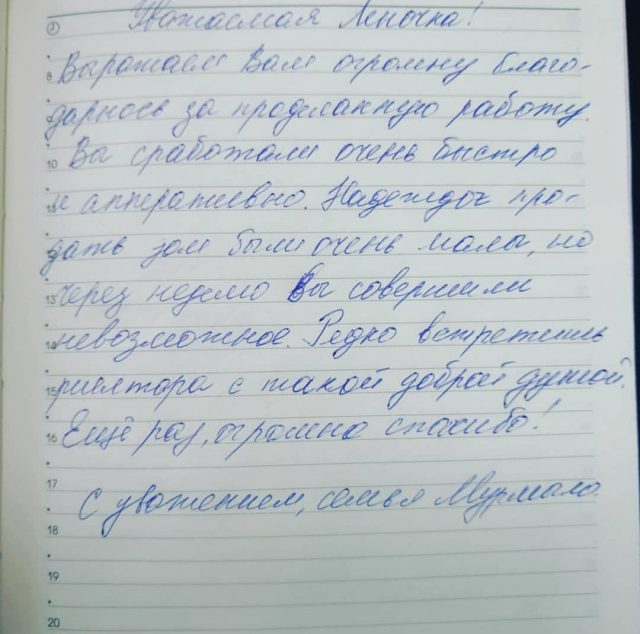 Уважаемая Леночка!
8 Выражаем Вам огромну благо-
дарнось за проделанную работу.
10 Вы сработали очень быстро
и аппративно. Надежды про-
дать дом были очень малы, но
13 через неделю Вы совершили
14 невозможное. Редко встретишь
15 риелтора с такой доброй душой.
16 Ещё раз, огромно спасибо!
17
С уважением, семья Мурмало.
18
19
20